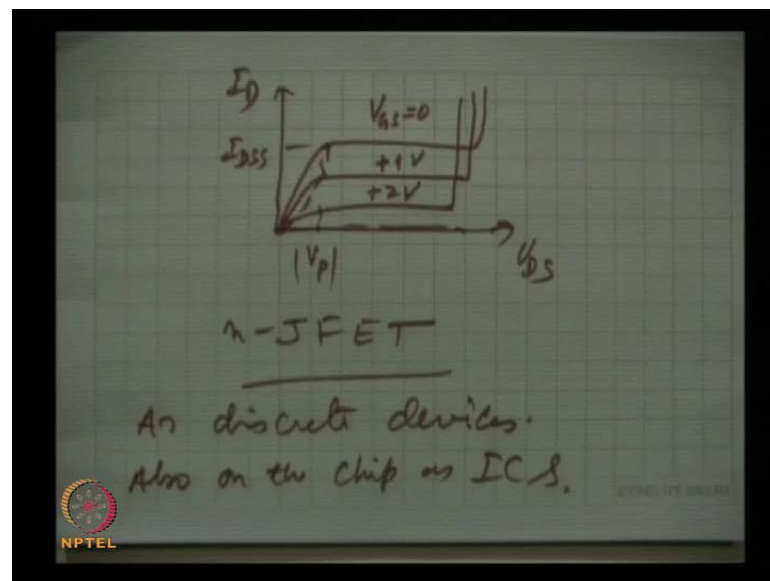 I_D
V_GS=0
I_DSS
+1V
+2V
|V_P|
V_DS
n-JFET
As discrete devices.
Also on the chip as ICS.
NPTEL